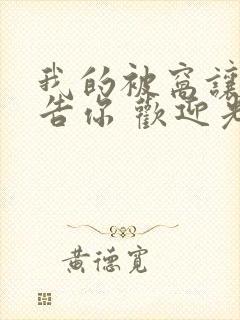 我的被窩讓
告你 歡迎光
黃德寬